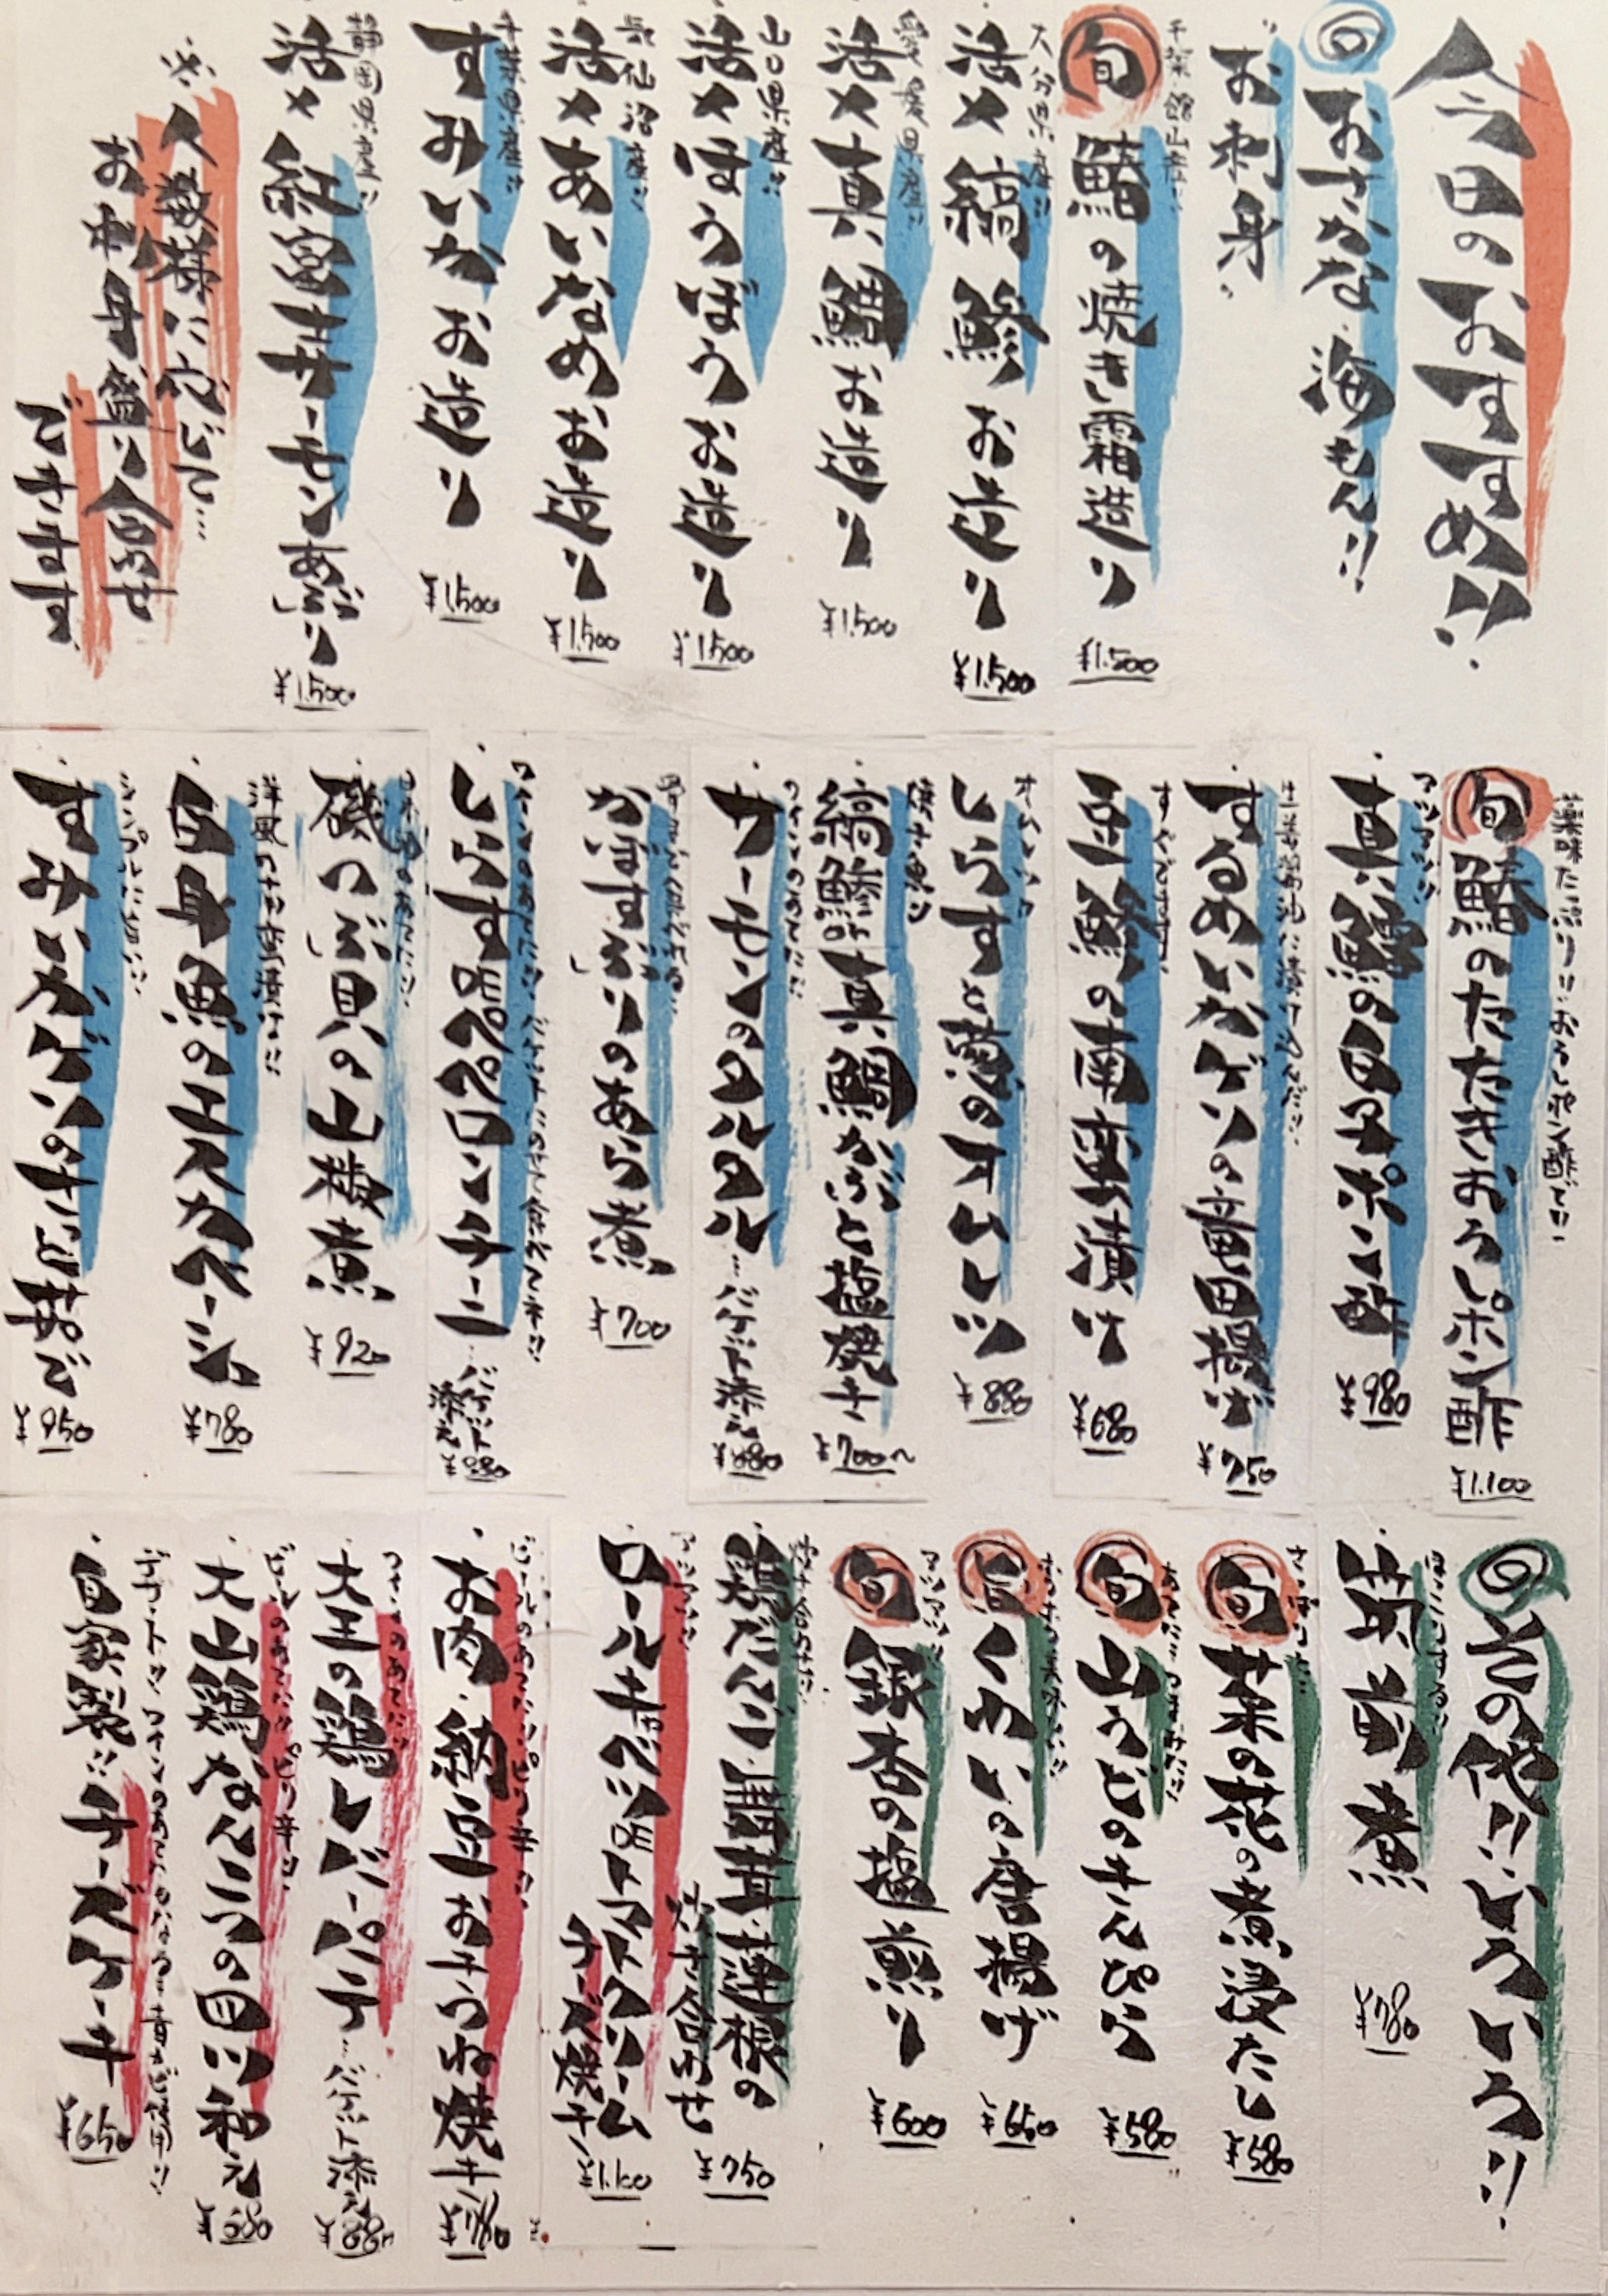 今日のおすすめ!!
おさかな 海もん!!
お刺身
千葉館山産!!
旬 鰆の焼き霜造り ¥1,500
大分県産!!
活〆縞鯵お造り ¥1,500
愛媛県産!!
活〆真鯛お造り ¥1,500
山口県産!!
活〆ほうぼうお造り ¥1,500
気仙沼産!!
活〆あいなめお造り ¥1,500
千葉県産!!
すみいかお造り ¥1,500
静岡県産!!
活〆紅富士サーモンあぶり ¥1,500
※人数様に応じて…
お刺身盛り合わせ
できます
薬味たっぷり!!おろしポン酢で!!
旬 鰆のたたきおろしポン酢 ¥1,100
アツアツ!!
真鱈の白子ポン酢 ¥980
するめいかげその竜田揚げ ¥750
豆鯵の南蛮漬け ¥680
しらすと葱のオムレツ ¥880
焼き魚!!
縞鯵or真鯛かぶと塩焼き ¥700~
ワインのあてに!!
サーモンのタルタル…バケット添え ¥680
かぼすぶりのあら煮 ¥700
しらすのペペロンチーニ…バケット添え ¥880
日本酒のあてに!!
磯つぶ貝の山椒煮 ¥920
洋風の南蛮漬け!!
白身魚のエスカベーシュ ¥780
シンプルに旨い!!
すみいかゲソのナンプラー ¥950
その他!!いろいろ!!
筑前煮 ¥780
旬 菜の花の煮浸たし ¥580
旬 山うどのきんぴら ¥580
旬 くわいの唐揚げ ¥650
アツアツ!!
旬 銀杏の塩煎り ¥600
炊き合わせ!!
鶏だんご・舞茸・蓮根の
炊き合わせ ¥750
アツアツ!!
ロールキャベツのトマトクリーム
チーズ焼き ¥1,100
ビールのあてに!!ピリ辛!!
お肉・納豆おきつね焼き ¥780
ワインのあてに!!
大王の鶏レバーパテ…バケット添え ¥680
ビールのあてに!!ピリ辛!!
大山鶏なんこつの四川和え ¥580
自家製!!チーズケーキ ¥650